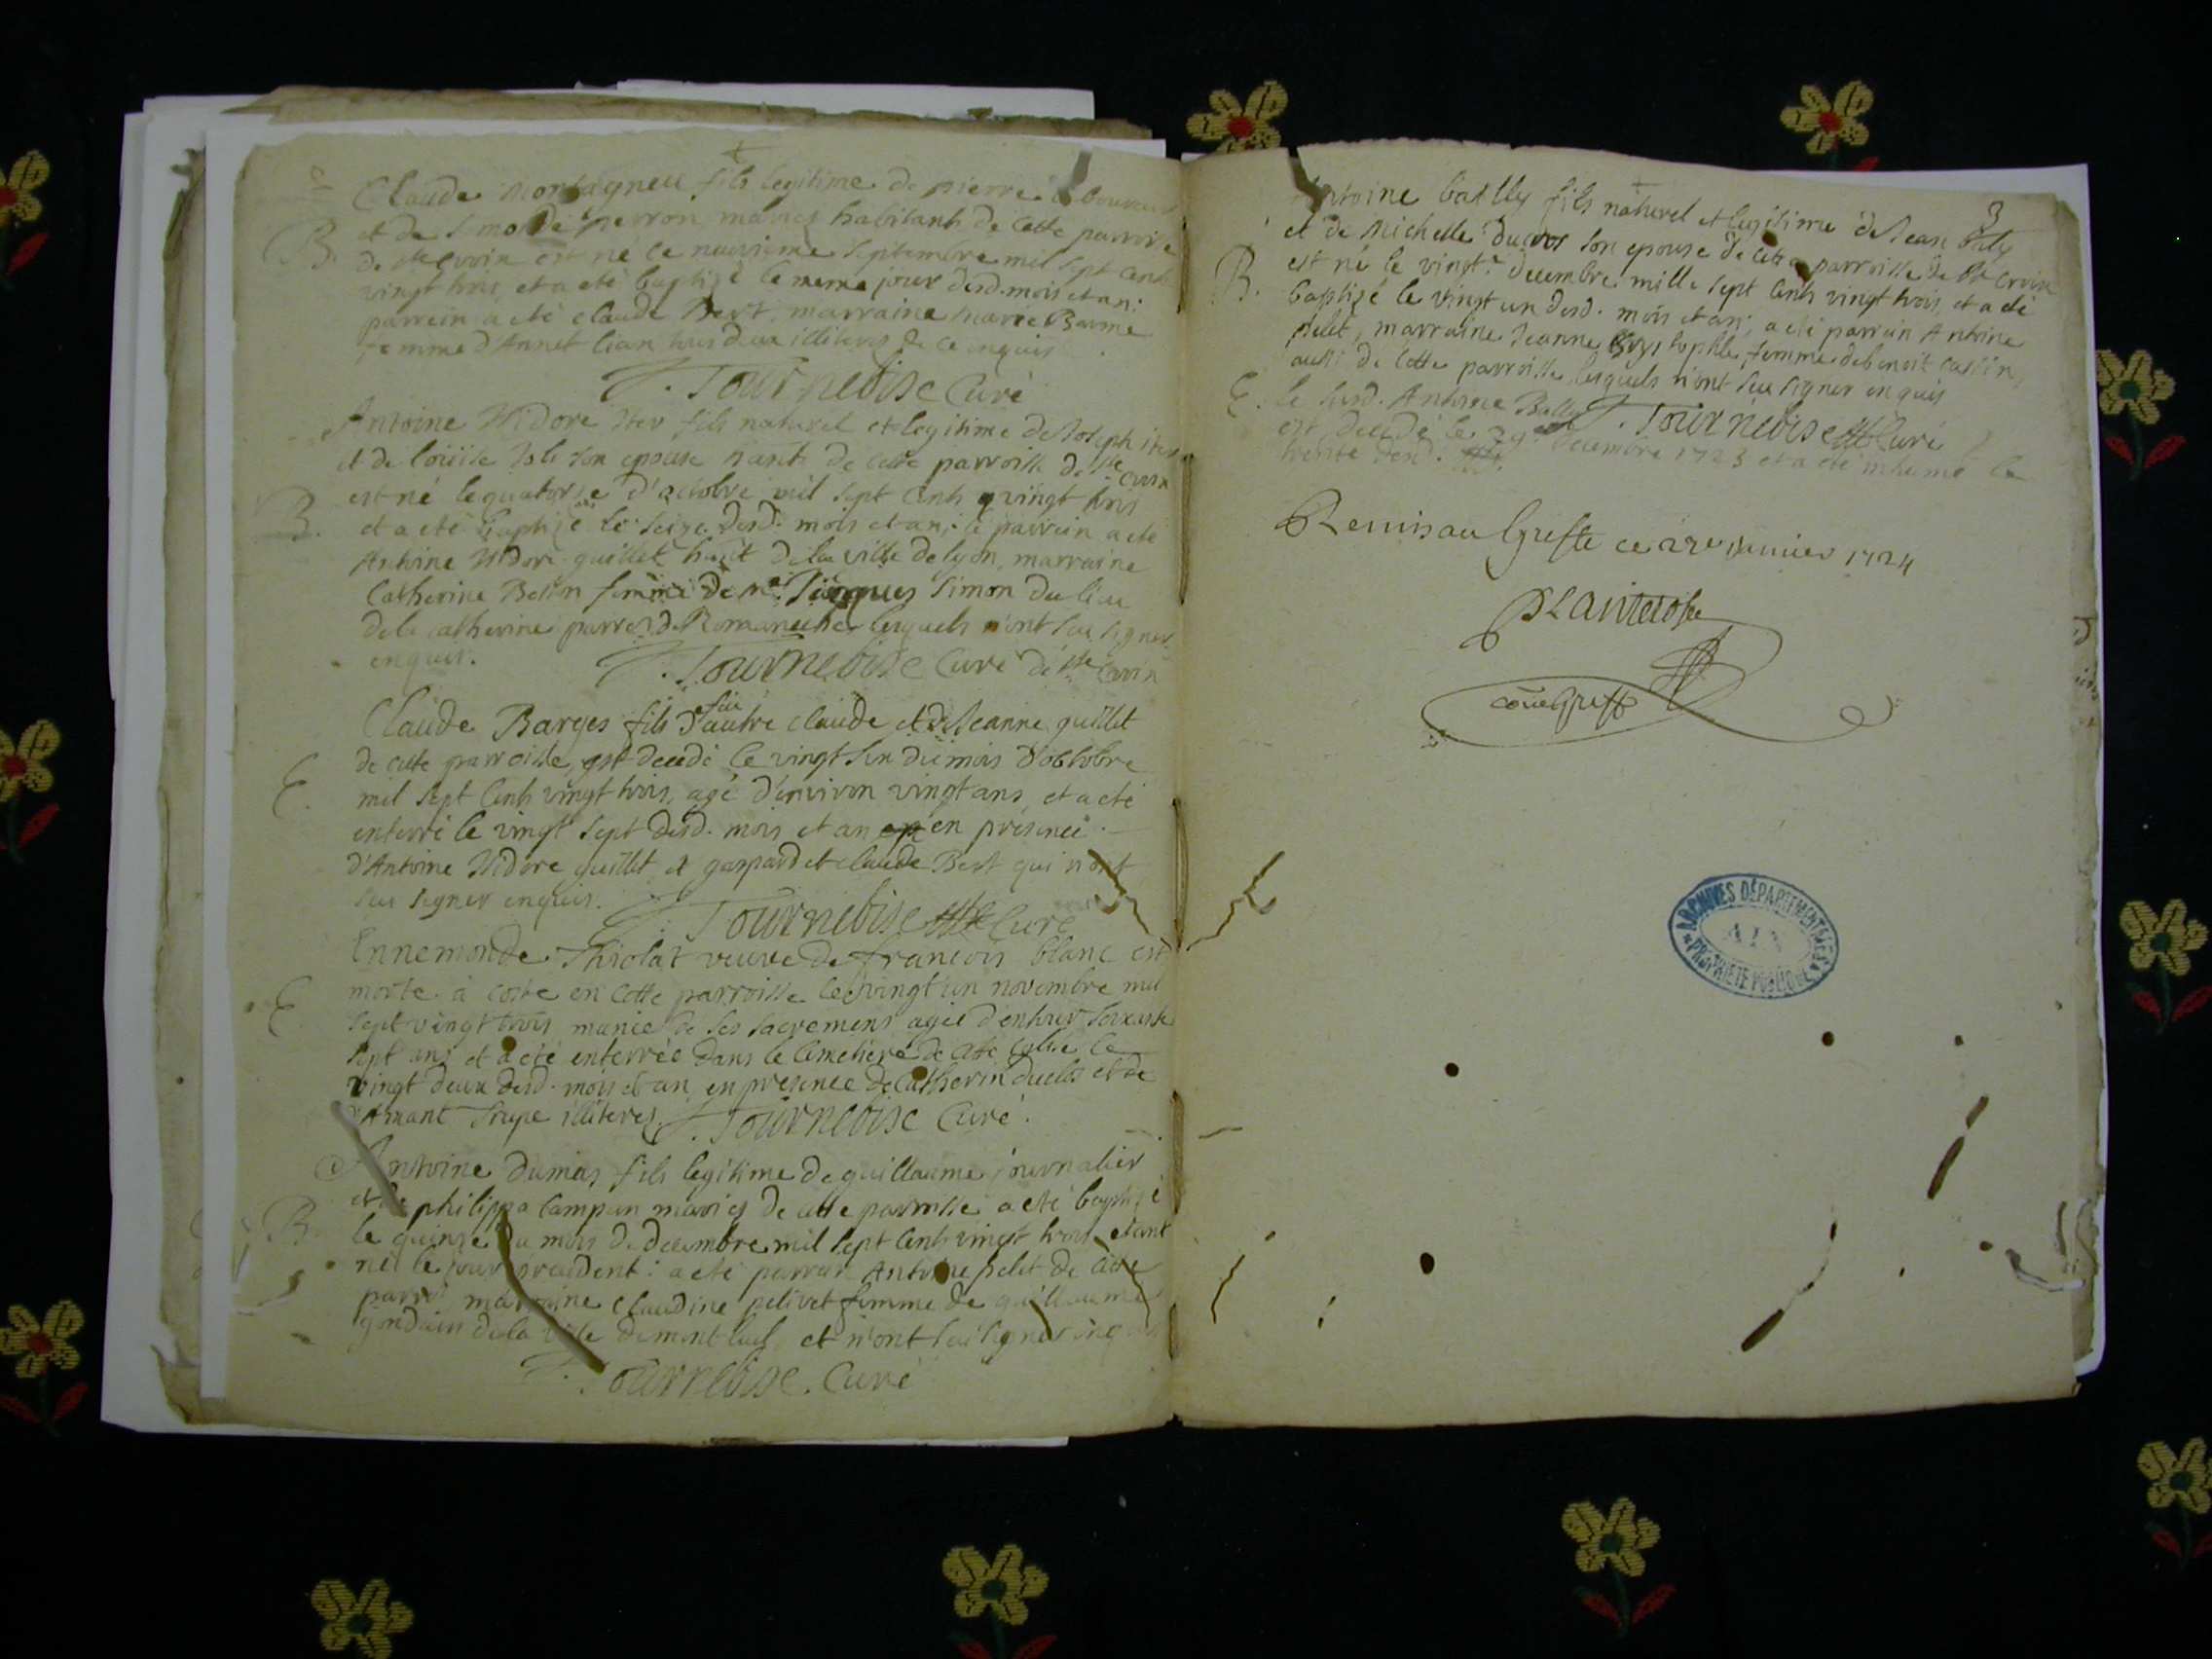 Claude Montagneu fils legitime de pierre laboureur
et de simonde perron mariés habitants de cette parroise
B. de ste croix est né le neuvieme septembre mil sept cent
vingt trois, et a eté baptizé le meme jour desd. mois et an:
parrein a eté claude Bert, marraine marie Barme
femme d'Annet lian tous deux illiterés de ce enquis
Tournebise Curé
Antoine Isidore iter fils naturel et legitime de Joseph iter
et de loüise son epouse de cette parroisse de ste croix
est né le quatorse d'octobre mil sept cents vingt trois
B. et a eté baptizé le seize desd. mois et an; le parrein a eté
Antoine Isidore guillet de la ville de lyon, marraine
Catherine Belin femme de me. Jacques Simon du lieu
de la catherine parroi. de Romaneche lesquels n'ont sceu signer
enquis. Tournebise Curé de ste Croix
Claude Barges fils d'autre feu claude et de Jeanne guillet
de cette parroisse, est decedé le vingt six du mois d'octobre
E. mil sept cents vingt trois, agé d'environ vingt ans, et a eté
enterré le vingt sept desd. mois et an en presence
d'Antoine Isidore guillet et gaspard et claude Bert qui n'ont
sceu signer enquis. Tournebise Curé
Ennemonde Thiolat veuve de francois blanc est
E. morte à coste en cette parroisse le vingt un novembre mil
sept vingt trois munie de ses sacremens agée d'environ soixante
sept ans et a eté enterrée dans le Cimetiere de cette eglise le
vingt deux desd. mois et an, en presence de Catherin duclos et de
Amant illiterés. Tournebise Curé.
Antoine dumas fils legitime de guillaume journalier
et de philippa campan mariés de cette parroisse a eté baptizé
B. le quinze du mois de decembre mil sept cents vingt trois etant
né le jour precedent: a eté parrein Antoine pelet de cette
parrse marraine claudine pelivet femme de guillaume
gondain de la ville de montluel et n'ont sceu signer enquis
Tournebise Curé
3
Antoine bailly fils naturel et legitime de Jean bally
et de Michelle duclos son epouse de cette parroisse de ste croix
B. est né le vingt.e decembre mille sept cents vingt trois, et a eté
baptizé le vingt un desd. mois et an; a eté parrein Antoine
pelet, marraine Jeanne femme de benoit cassin
aussi de cette parroisse lesquels n'ont sceu signer enquis
Tournebise Curé
E. le susd. Antoine Bally
est decedé le 29 decembre 1723 et a eté inhumé le
trente desd.
Remis au Greffe ce 22e janvier 1724
Plantelosse
ARCHIVES DÉPARTEMENTALES
AIN
PROPRIÉTÉ PUBLIQUE